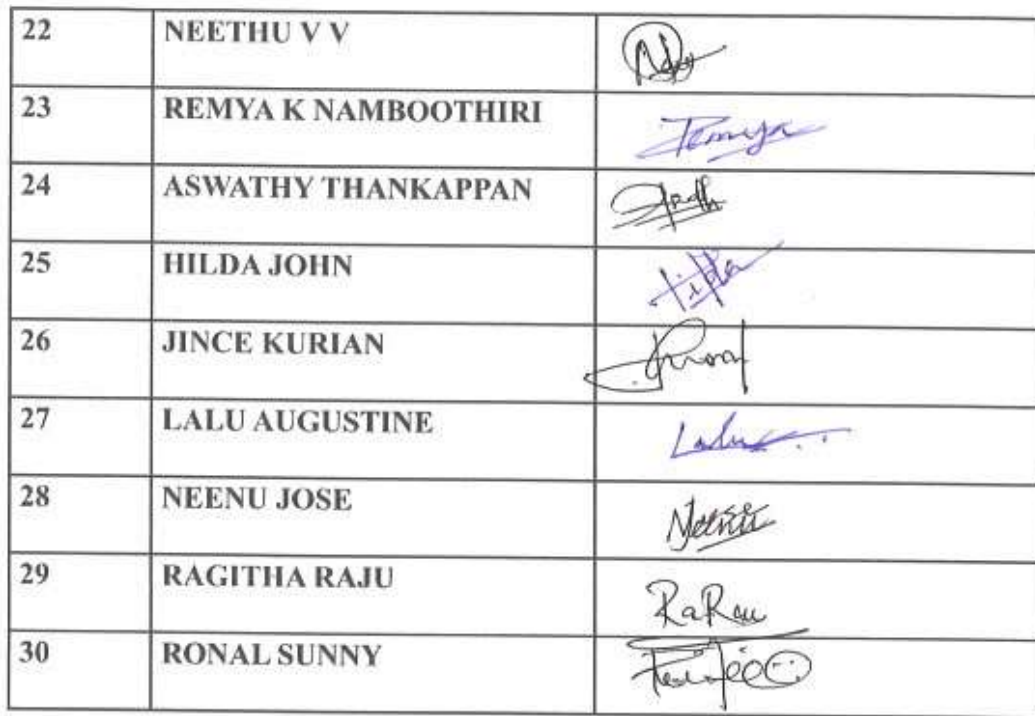 22 NEETHU V V
23 REMYA K NAMBOOTHIRI Remya
24 ASWATHY THANKAPPAN
25 HILDA JOHN Hilda
26 JINCE KURIAN
27 LALU AUGUSTINE Lalu
28 NEENU JOSE
29 RAGITHA RAJU
30 RONAL SUNNY